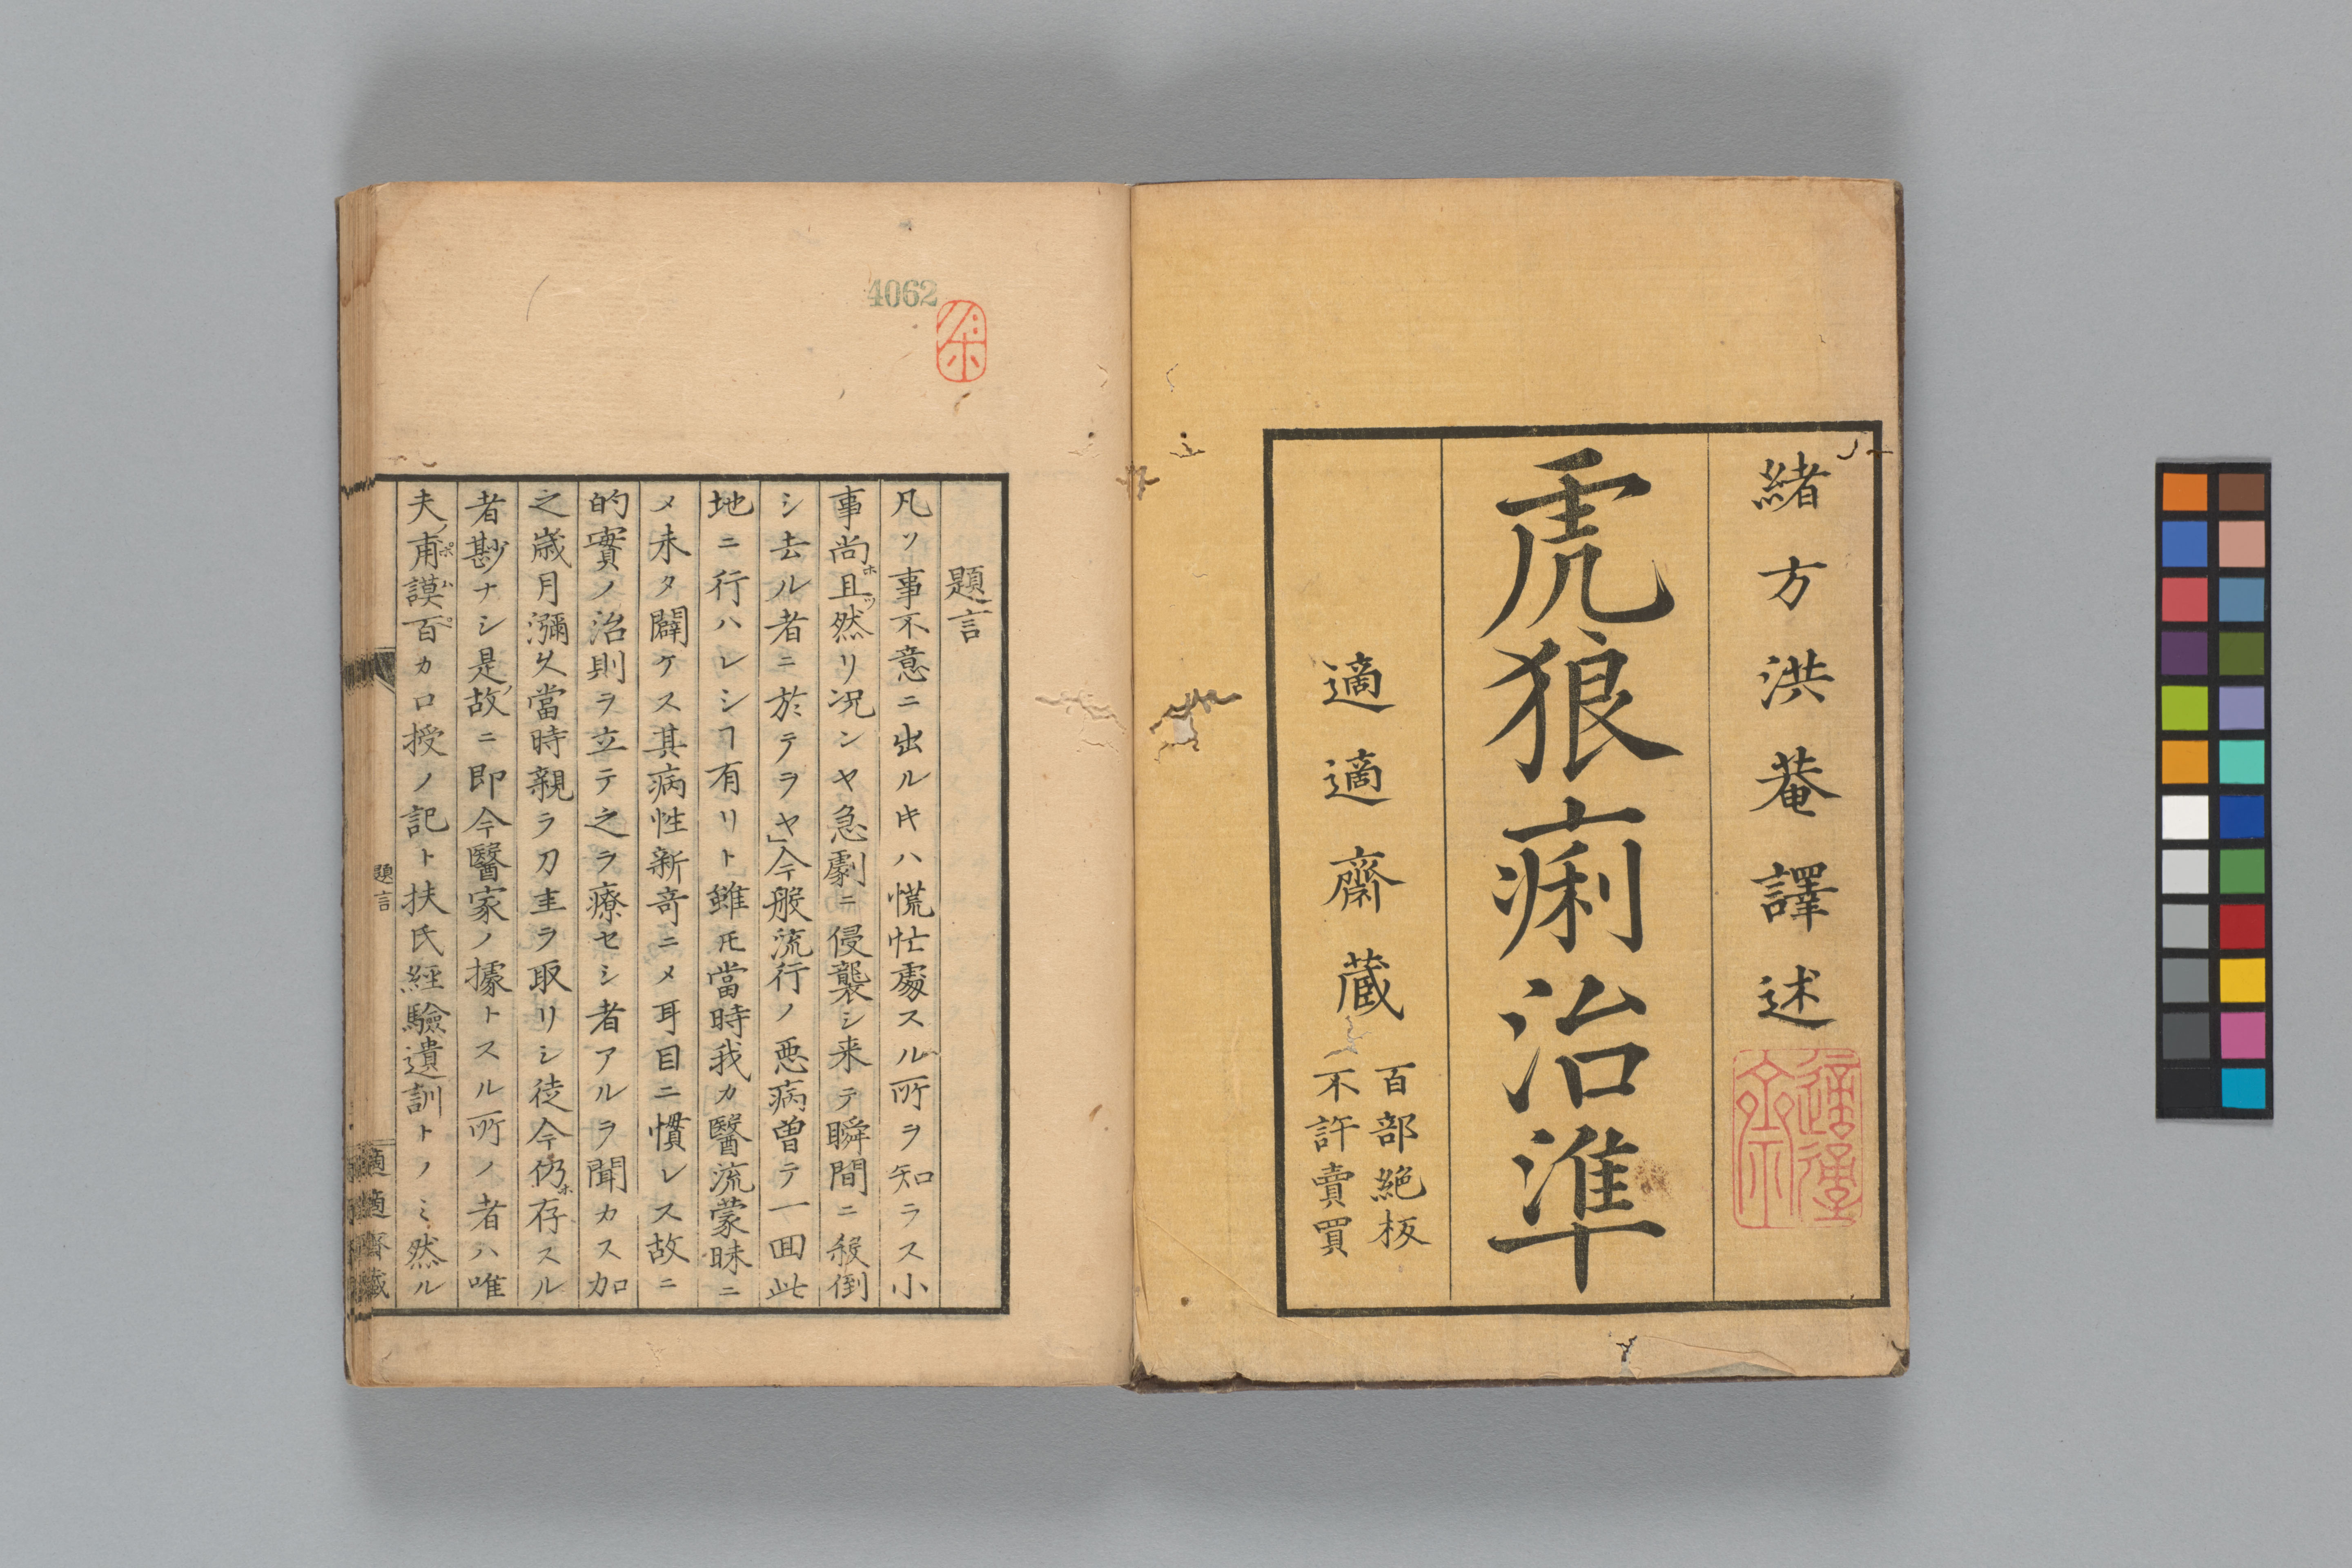 緒方洪菴譯述
虎狼痢治準
適適齋蔵
百部絶板
不許賣買
4062
題言
凡ソ事不意ニ出ルキハ慌忙處スル所ヲ知ラス小
事尚ホ且ツ然リ况ンヤ急劇ニ侵襲シ来テ瞬間ニ殺倒
シ去ル者ニ於テヲヤ」今般流行ノ悪病曽テ一回此
地ニ行ハレシヿ有リト雖𪜈當時我カ醫流蒙昧ニ
メ未タ闢ケス其病性新竒ニメ耳目ニ慣レス故ニ
的實ノ治則ヲ立テ之ヲ療セシ者アルヲ聞カス加
之歳月瀰久當時親ラ刀圭ヲ取リシ徒今仍ホ存スル
者尠ナシ是ノ故ニ即今醫家ノ據トスル所ノ者ハ唯
夫ノ甫ポ謨ム百ペカ口授ノ記ト扶氏經驗遺訓トノミ然ル
題言
適適齋藏